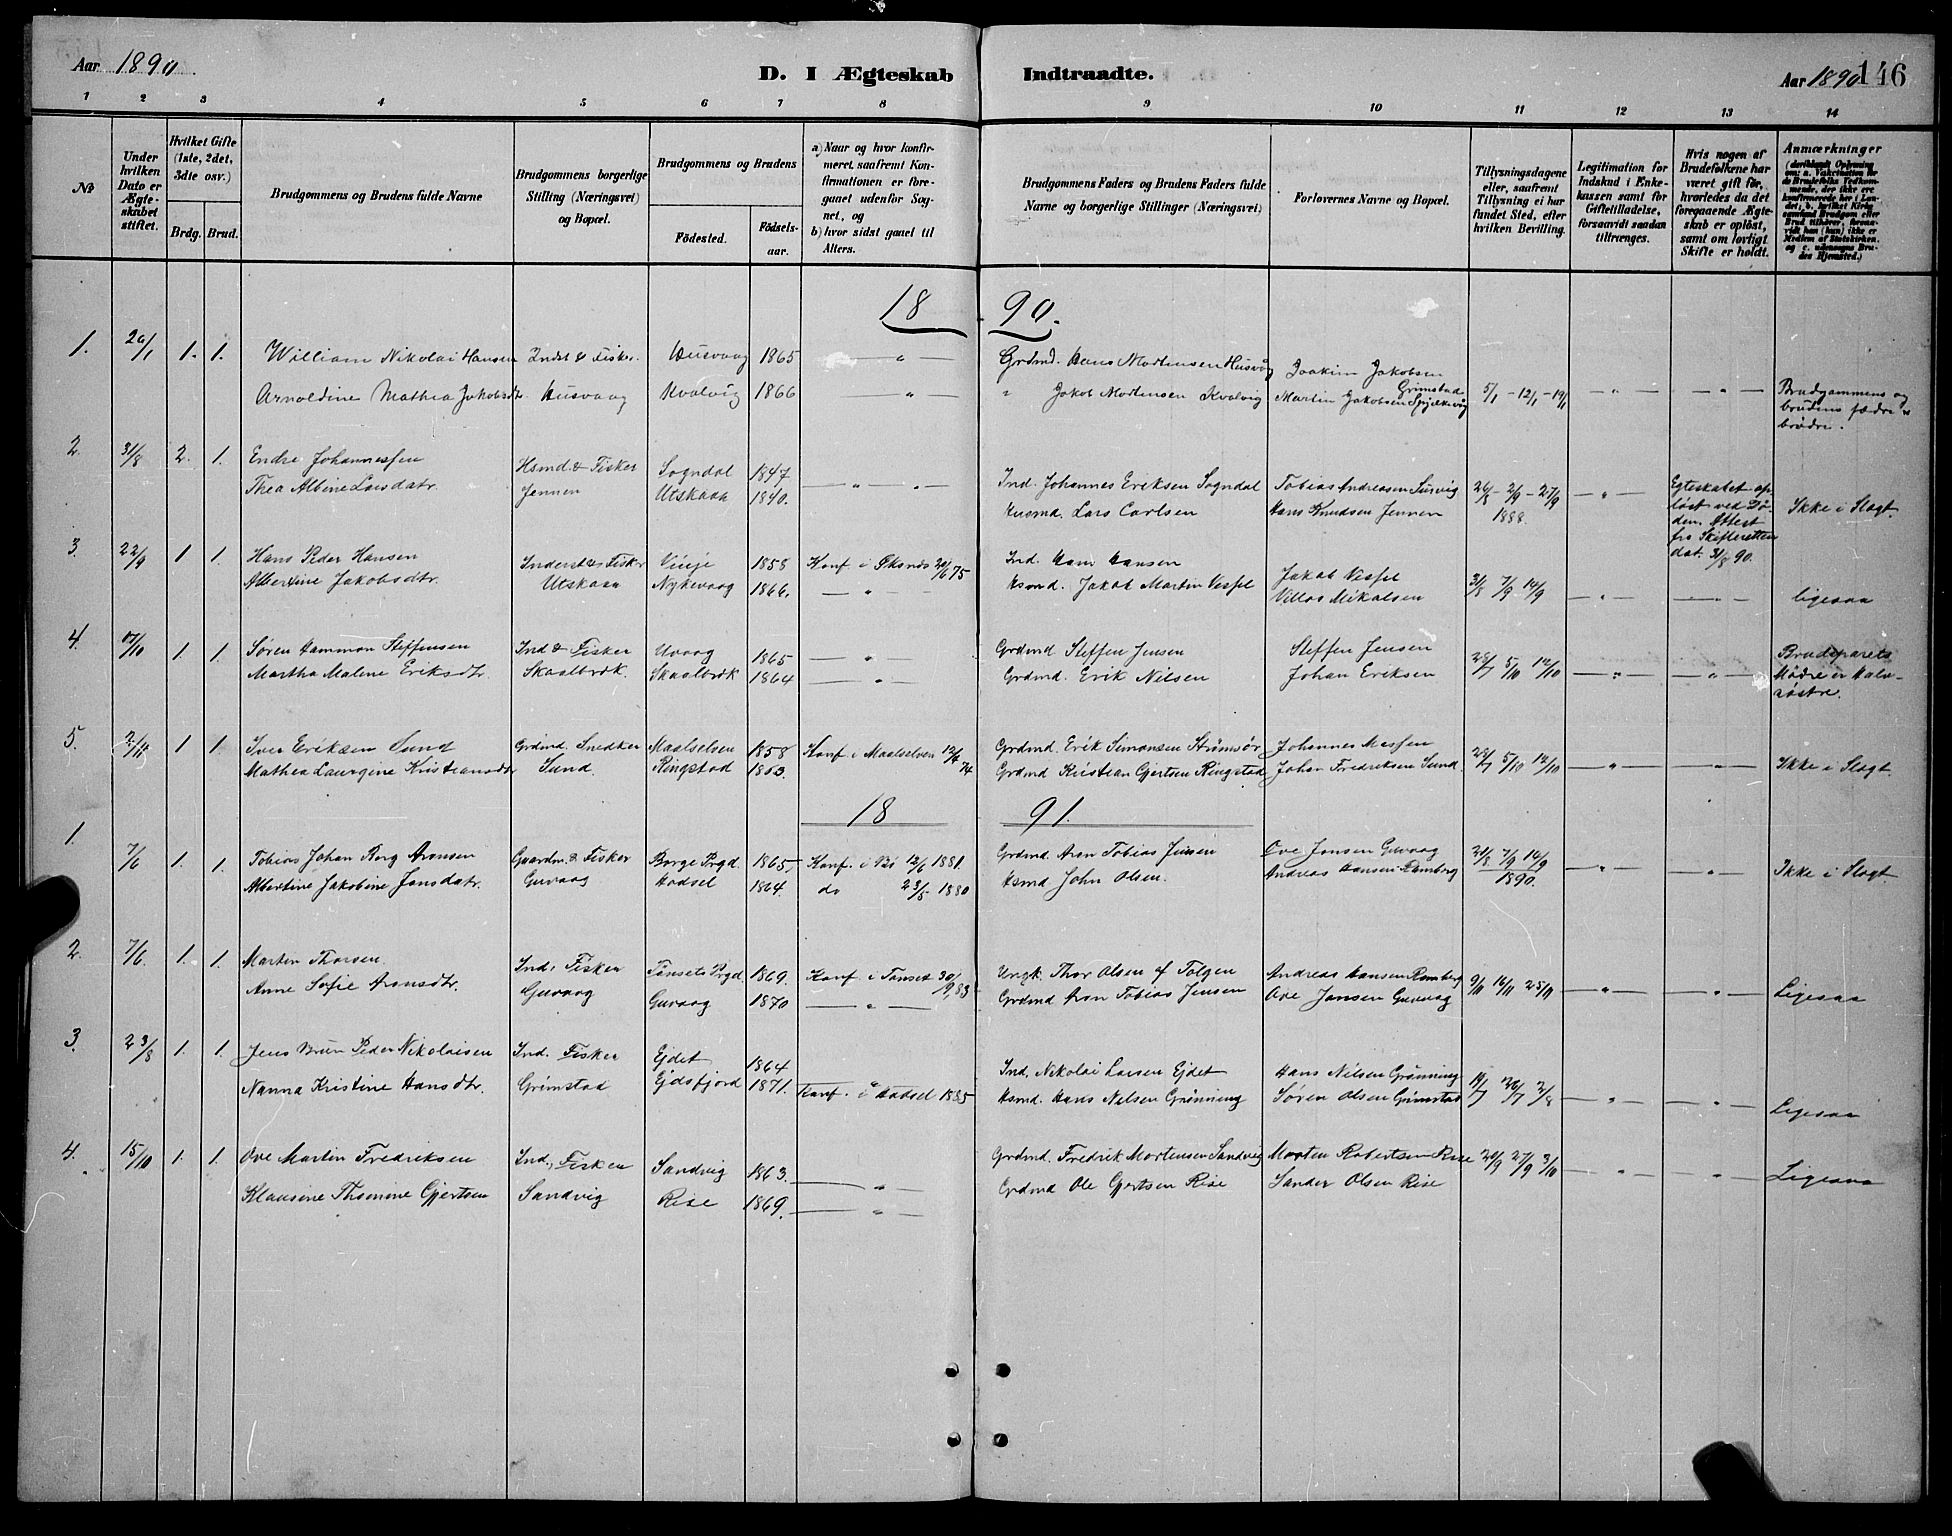 Aar 1890.
D. I Ægteskab Indtraadte.
Aar 1890 146
1 2 3 4 5 6 7 8 9 10 11 12 13 14
№
Under hvilken Dato er Ægteskabet stiftet.
Hvilket Gifte (1ste, 2det, 3die osv.)
Brdg. Brud.
Brudgommens og Brudens fulde Navne
Brudgommens borgerlige Stilling (Næringsvei) og Bopæl.
Brudgommens og Brudens
Födested. Födselsaar.
a) Naar og hvor konfirmeret, saafremt Konfirmationen er foregaaet udenfor Sognet, og
b) hvor sidst gaaet til Alters.
Brudgommens Faders og Brudens Faders fulde Navne og borgerlige Stillinger (Næringsvei)
Forlovernes Navne og Bopæl.
Tillysningsdagene eller, saafremt Tillysning ei har fundet Sted, efter hvilken Bevilling.
Legitimation for Indskud i Enkekassen samt for Giftetilladelse, forsaavidt saadan tiltrænges.
Hvis nogen af Brudefolkene har været gift før, hvorledes da det foregaaende Ægteskab er oplöst, samt om lovligt Skifte er holdt.
Anmærkninger
18 90.
1. 1. 1. William Nikolai Hansen Indst & Fisker. Husvaag 1865 — " — Grdmd. Hans Mortensen Husvåg Joakim Jakobsen Grimstad
Arnoldine Mathea Jakobsdtr. Husvaag Kvalvig 1866 — " — " Jakob Mortensen Kvalvig Martin Jakobsen 5/1 - 12/1 - 19/1 — " — — " — Brudgommens og brudens fædre er brødre.
2. 31/8 2. 1. Endre Johannessen Hsmd. & Fisker Sogndal 1847 Ind. Johannes Eriksen Sogndal Tobias Andreasen
Thea Albine Larsdatr. Jennen Utskaaa 1840. — " — Husmd. Lars Carlsen Hans Knudsen Jennen 26/8 - 2/9 - 27/9 1888. — " — Egteskabet opløst ved Døden. Attest fra Skifteretten dat. 31/8 90. Ikke i Slægt.
3. 22/9 1 1 Hans Peder Hansen Inderst & Fisker 1858 Konf i Øksnes 20/6 75 Ind. Hans Hansen Jakob Vessel
Albertine Jakobsdtr. Utskaaa Nykevaag 1866. — " — Hsmd. Jakob Martin Vessel Villas Mikalsen 31/8 7/9 14/9 — " — — " — ligesaa
4. 17/10 1. 1. Søren Hammon Steffensen Ind & Fisker Uvaag 1865 — " — Grdmd Steffen Jensen Steffen Jensen
Martha Malene Eriksdtr. Skaalbrek. Skaalbrek 1864 — " — Grdmd. Erik Nilsen Johan Eriksen 5/10 12/10 — " — — " — Brudeparets Mødre er Halvsøstre.
5. 2/11 1 1. Iver Eriksen Sund Grdmd. Snedker Maalselven 1858 Konf i Maalselven 12/7 74 Grdmd. Erik Simonsen Johannes Messen
Mathea Laurgine Kristiansdtr Sund. Ringstad 1863. Grdmd Kristian Gjertsen Ringstad Johan Fredriksen Sund. 5/10 12/10 — " — — " — Ikke i Slægt.
18 91.
1. 7/6 1. 1. Tobias Johan Borg Aronsen Gaardm. & Fisker Borge Prgd. 1865, Konf. i Bø 12/6 1881. Grdmd Aron Tobias Jensen Ove Jonsen Guvaag
Albertine Jakobine Jonsdatr. Guvaag Hadsel 1864. do 23/5 1880 Hsmd John Olsen. Andreas Hansen Ramberg 7/9 14/9 1890. — " — — " — Ikke i Slægt.
2. 7/6. 1. 1. Martin Thorsen. Ind. Fisker Tønsets Prgd. 1869. Konf i Tønset 30/9, 83 Ungk. Thor Olsen af Tolgen Andreas Hansen Ramberg
Anne Sofie Aronsdtr. Guvaag Guvaag 1870 — " — Grdmd Aron Tobias Jensen Ove Jonsen Guvaag 9/11 16/11 25/11 — " — — " — Ligesaa
3. 23/8 1. 1. Jens Brun Peder Nikolaisen Ind. Fisker Ejdet 1864 — " — Ind. Nikolai Larsen Ejdet Hans Nilsen Grønning
Nanna Kristine Hansdtr. Grimstad Ejdsfjord 1871. Konf. i Hadsel 1885 Hsmd. Hans Nilsen Grønning Søren Olsen Grimstad 19/7 26/7 2/8 — " — — " — Ligesaa
4. 15/10 1. 1. Ove Martin Fredriksen Ind., Fisker Sandvig 1863. — " — Grdmd. Fredrik Mortensen Sandvig Morten Robertsen Rise 20/9 27/9 3/10
Klausine Thomine Gjertsen Sandvig Rise 1869. — " — Grdmd Ole Gjertsen Rise Sander Olsen Rise — " — — " — Ligesaa